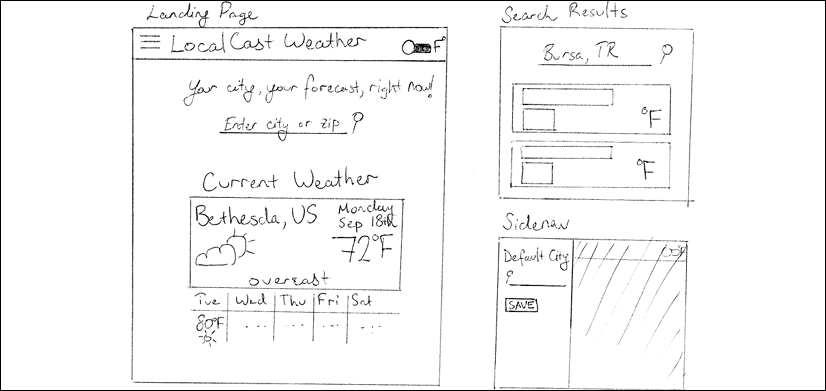 Landing Page
LocalCast Weather
°F
Your city, your forecast, right now!
Enter city or zip
Current Weather
Bethesda, US
Monday
Sep 18th
72°F
overcast
Tue Wed Thu Fri Sat
80°F ... ... ... ...
Search Results
Bursa, TR
°F
°F
Sidenav
Default City
SAVE